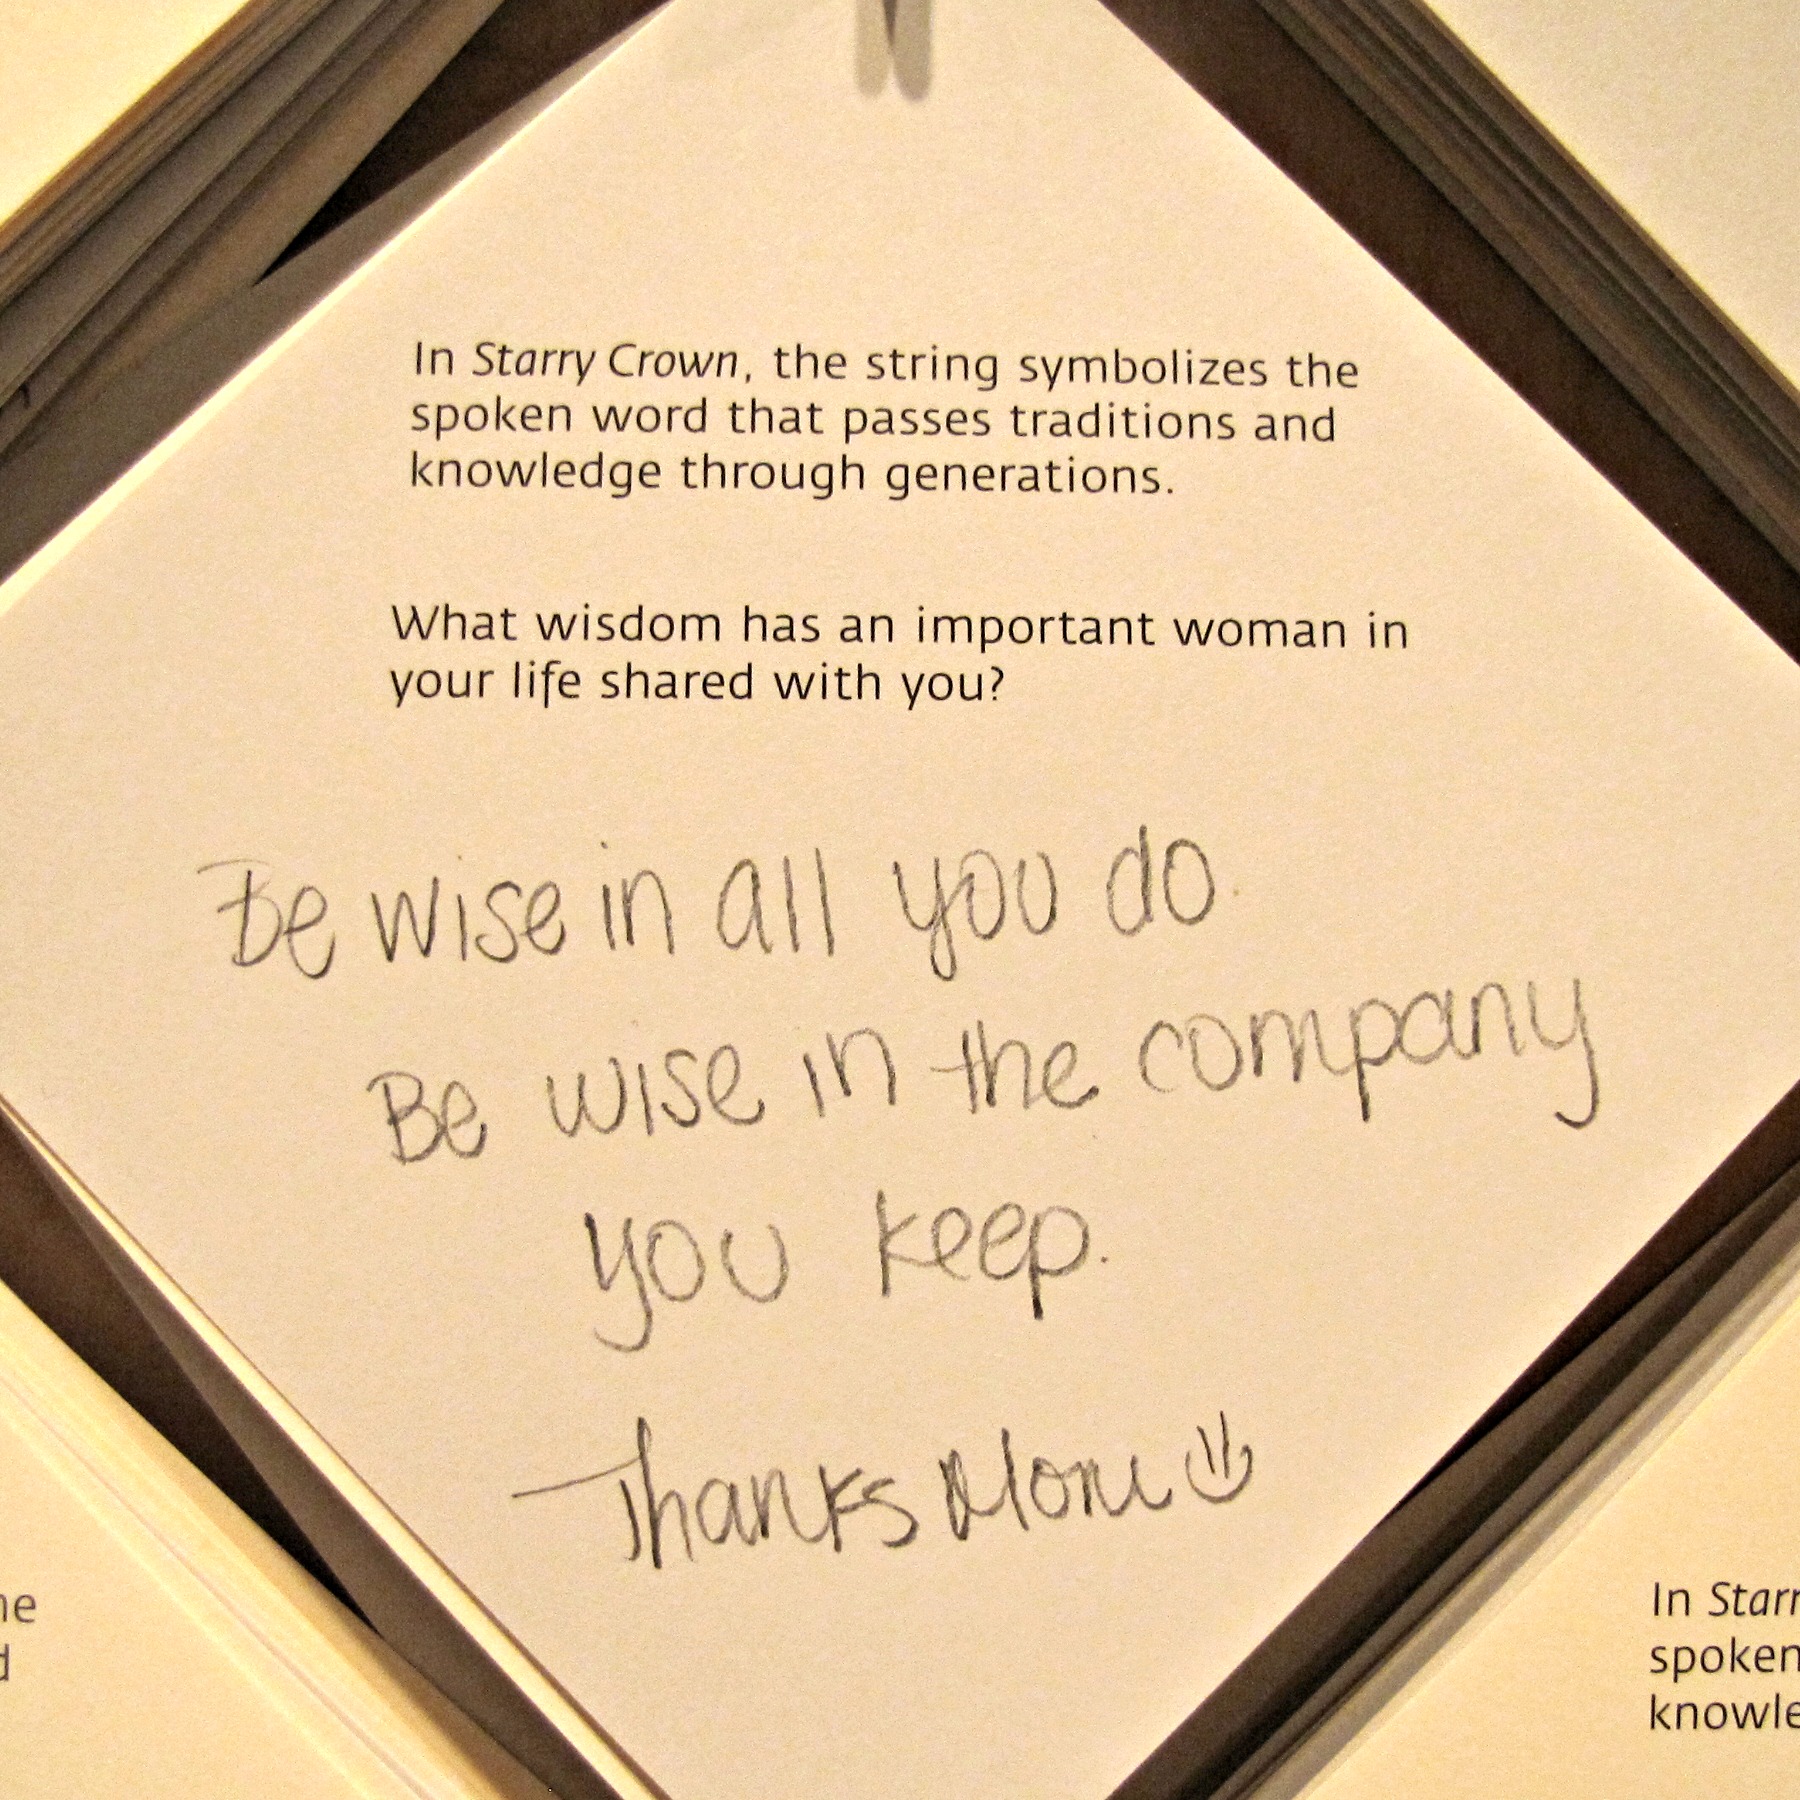 In Starry Crown, the string symbolizes the
spoken word that passes traditions and
knowledge through generations.
What wisdom has an important woman in
your life shared with you?
Be wise in all you do.
Be wise in the company
you keep.
Thanks Mom
In Starr
spoken
knowle